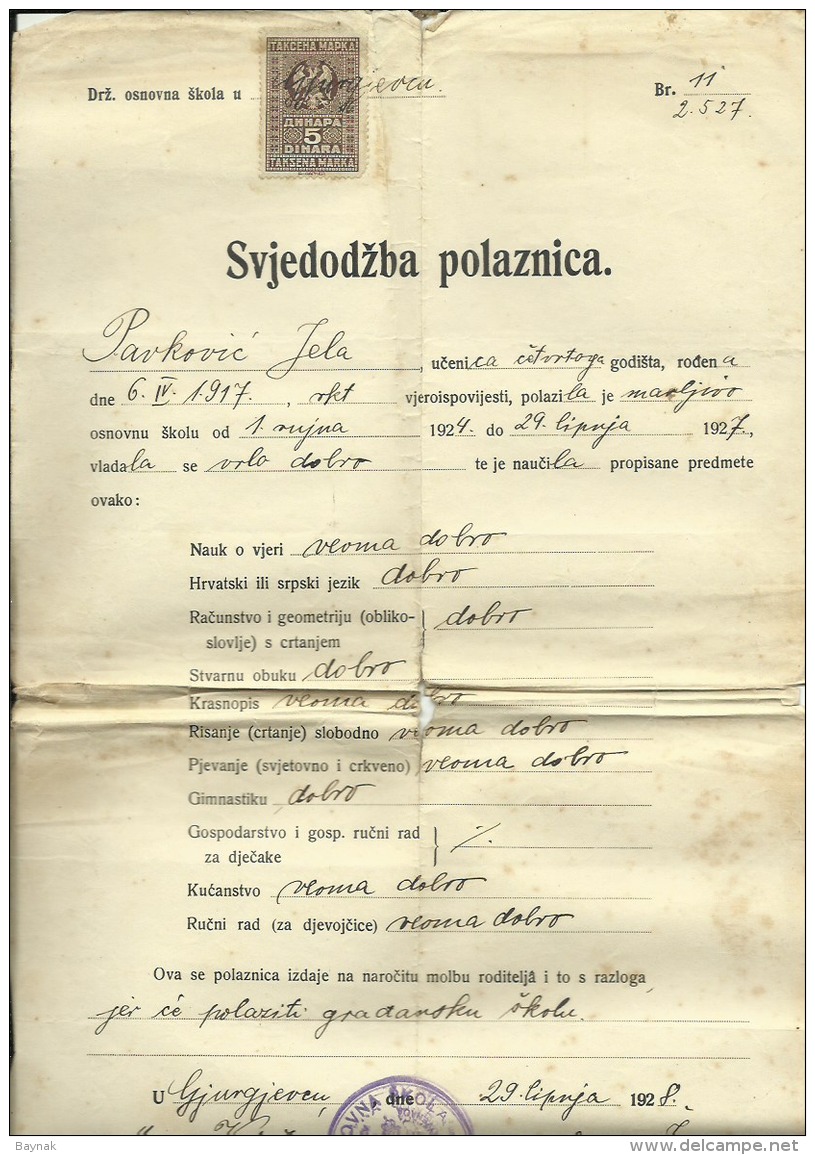 ТАКСЕНА МАРКА
Drž. osnovna škola u Gjurgjevcu. Br. 11
2.527.
ДИНАРА
5
DINARA
TAKSENA MARKA
Svjedodžba polaznica.
Pavković Jela, učenica četvrtoga godišta, rođena
dne 6. IV. 1917, rkt vjeroispovijesti, polazila je marljivo
osnovnu školu od 1. rujna 1924. do 29. lipnja 1927.,
vladala se vrlo dobro te je naučila propisane predmete
ovako:
Nauk o vjeri veoma dobro
Hrvatski ili srpski jezik dobro
Računstvo i geometriju (obliko-
slovlje) s crtanjem } dobro
Stvarnu obuku dobro
Krasnopis veoma dobro
Risanje (crtanje) slobodno veoma dobro
Pjevanje (svjetovno i crkveno) veoma dobro
Gimnastiku dobro
Gospodarstvo i gosp. ručni rad
za dječake } ·/·
Kućanstvo veoma dobro
Ručni rad (za djevojčice) veoma dobro
Ova se polaznica izdaje na naročitu molbu roditeljâ i to s razloga,
jer će polaziti građansku školu.
U Gjurgjevcu, dne 29. lipnja 1928.
OVNA ŠKOLA
Baynak
delcampe.net